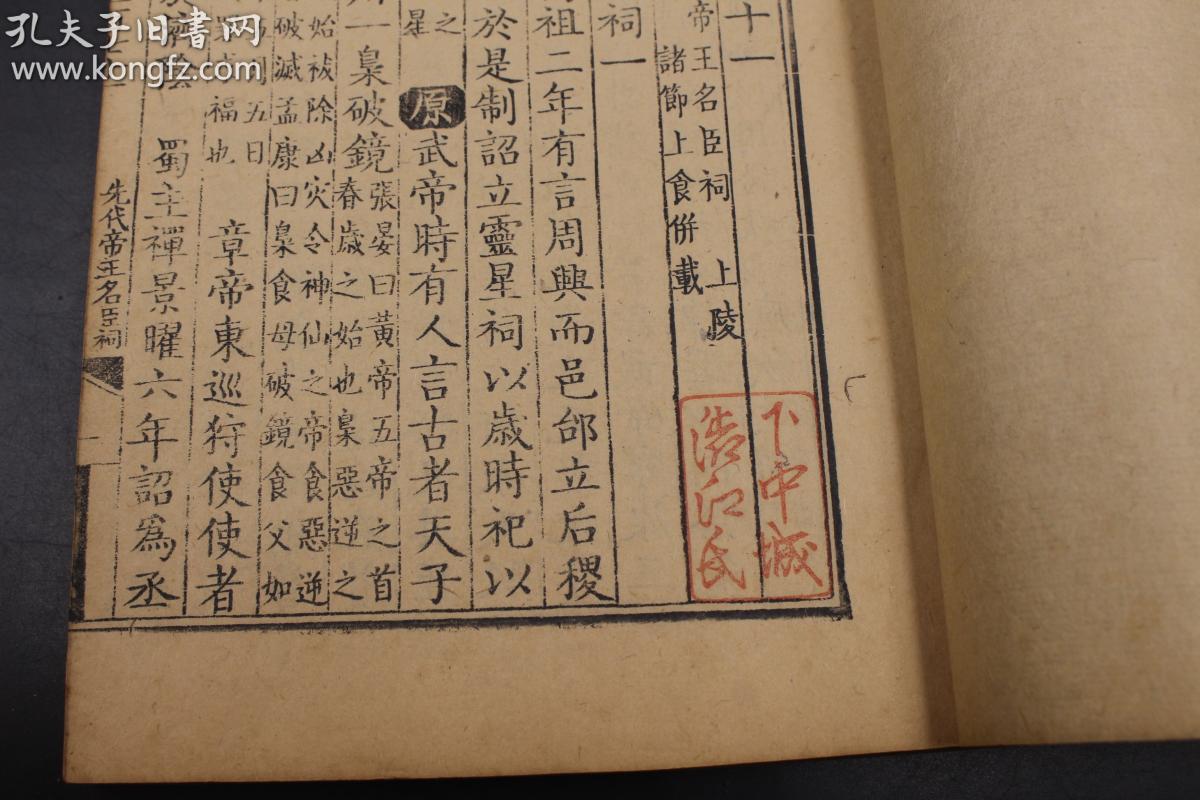 孔夫子旧書网
www.kongfz.com
十一
帝王名臣祠 上陵
諸節上食併載
祠一
祖二年有言周興而邑邰立后稷
於是制詔立靈星祠以歲時祀以
之
星
原武帝時有人言古者天子
一梟破鏡張晏曰黃帝五帝之首
春歲之始也梟惡逆之
始祓除凶灾令神仙之帝食惡逆
破滅孟康曰梟食母破鏡食父如
五日
福也
章帝東巡狩使使者
蜀主禪景曜六年詔爲丞
先代帝王名臣祠
一
下中城
浩江氏